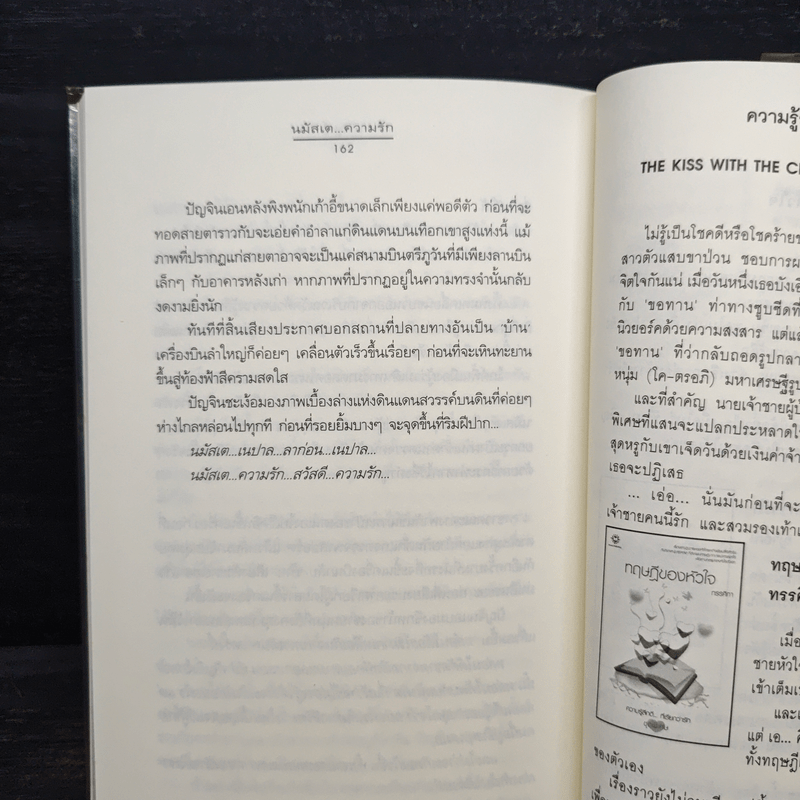 นมัสเต...ความรัก
162
ปัญจินเอนหลังพิงพนักเก้าอี้ขนาดเล็กเพียงแค่พอดีตัว ก่อนที่จะ
ทอดสายตาราวกับจะเอ่ยคำอำลาแก่ดินแดนบนเทือกเขาสูงแห่งนี้ แม้
ภาพที่ปรากฏแก่สายตาอาจจะเป็นแค่สนามบินตรีภูวันที่มีเพียงลานบิน
เล็กๆ กับอาคารหลังเก่า หากภาพที่ปรากฏอยู่ในความทรงจำนั้นกลับ
งดงามยิ่งนัก
ทันทีที่สิ้นเสียงประกาศบอกสถานที่ปลายทางอันเป็น 'บ้าน'
เครื่องบินลำใหญ่ก็ค่อยๆ เคลื่อนตัวเร็วขึ้นเรื่อยๆ ก่อนที่จะเหินทะยาน
ขึ้นสู่ท้องฟ้าสีครามสดใส
ปัญจินชะเง้อมองภาพเบื้องล่างแห่งดินแดนสวรรค์บนดินที่ค่อยๆ
ห่างไกลหล่อนไปทุกที ก่อนที่รอยยิ้มบางๆ จะจุดขึ้นที่ริมฝีปาก...
นมัสเต...เนปาล...ลาก่อน...เนปาล...
นมัสเต...ความรัก...สวัสดี...ความรัก...
ความรู้
THE KISS WITH THE
ไม่รู้เป็นโชคดีหรือโชคร้าย
สาวตัวแสบขาป่วน ชอบการ
จิตใจกันแน่ เมื่อวันหนึ่งเธอบังเอิ
กับ 'ขอทาน' ท่าทางซูบซีดที่
นิวยอร์คด้วยความสงสาร แต่
'ขอทาน' ที่ว่ากลับถอดรูปกลา
หนุ่ม (ใค-ตรอภิ) มหาเศรษฐีรูป
และที่สำคัญ นายเจ้าชายผู้
พิเศษที่แสนจะแปลกประหลาด
สุดหรูกับเขาเจ็ดวันด้วยเงินค่าจ้า
เธอจะปฏิเสธ
... เอ่อ... นั่นมันก่อนที่จะ
เจ้าชายคนนี้รัก และสวมรองเท้า
ทฤษฎีของหัวใจ
ทฤษ
ทรรศิ
เมื่อ
ชายหัวใจ
เข้าเต็มเ
และเ
แต่ เอ...
ทั้งทฤษฎี
ของตัวเอง